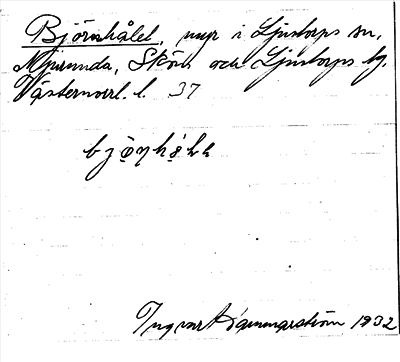 Björnhålet, myr i Ljustorps sn,
Njurunda, Sköns och Ljustorps tg.
Västernorrl. l. 37
Ingvar Hammarström 1932